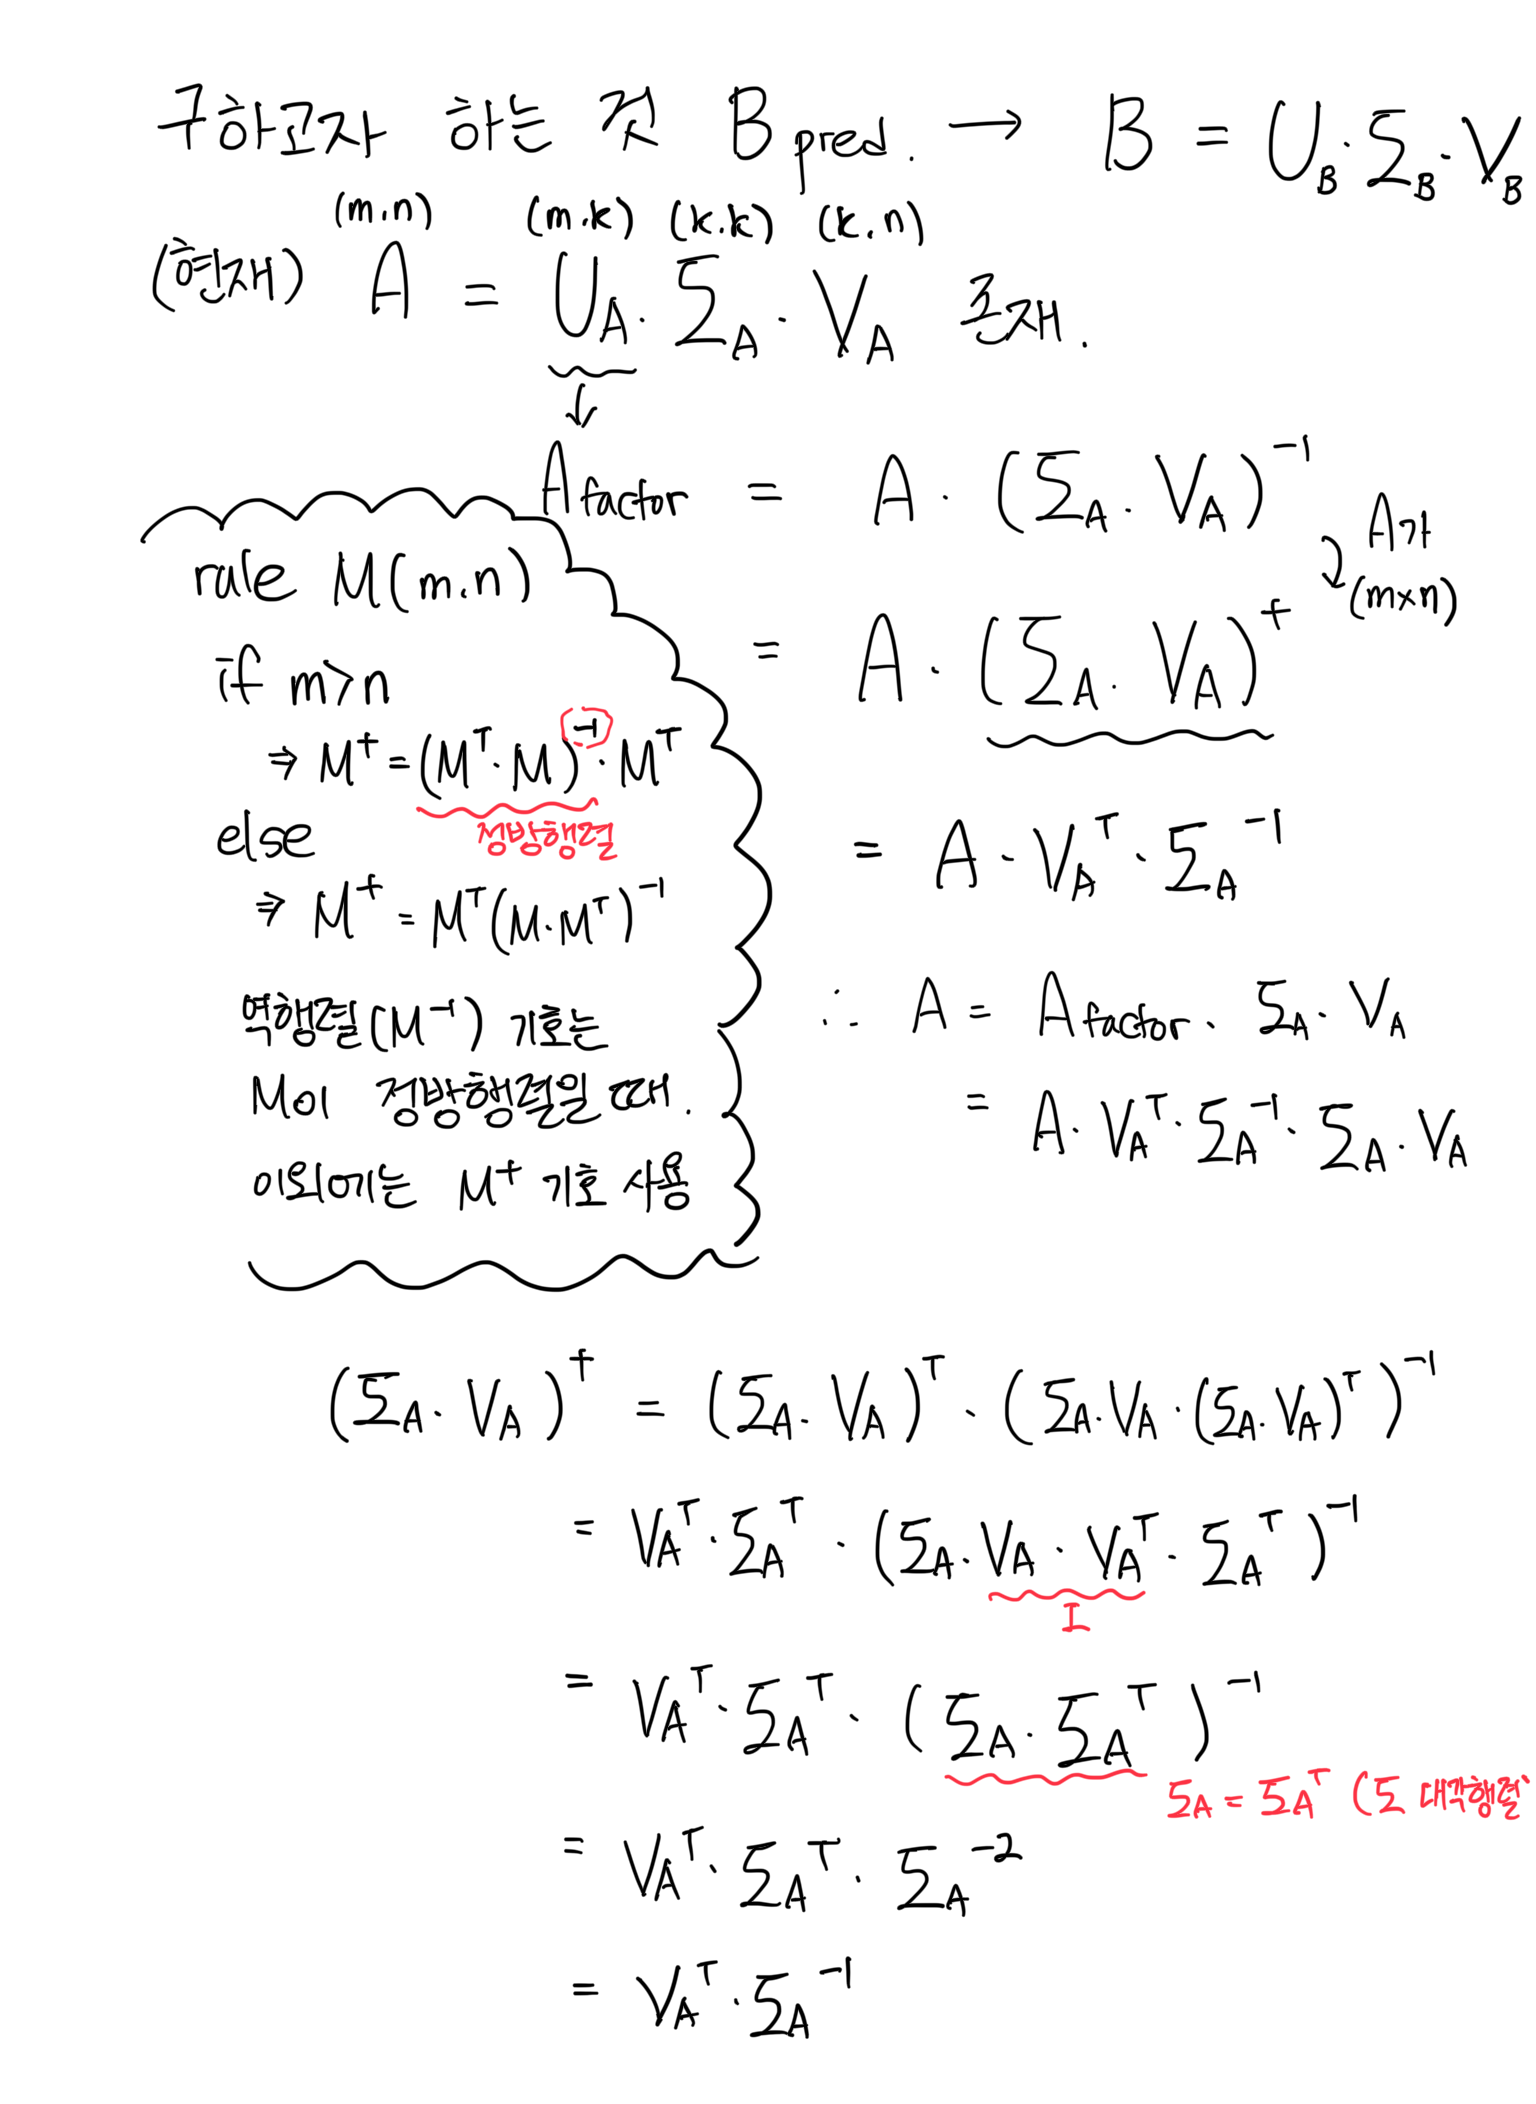 구하고자 하는 것 B pred. → B = U_B · Σ_B · V_B
(m.n) (m.k) (k.k) (k.n)
(현재) A = U_A · Σ_A · V_A 존재.
↓
A factor = A · (Σ_A · V_A)⁻¹
A가
(m×n)
= A · (Σ_A · V_A)⁺
= A · V_Aᵀ · Σ_A⁻¹
∴ A = A factor · Σ_A · V_A
= A · V_Aᵀ · Σ_A⁻¹ · Σ_A · V_A
rule M(m.n)
if m>n
⇒ M⁺ = (Mᵀ · M)⁻¹ · Mᵀ
정방행렬
else
⇒ M⁺ = Mᵀ(M · Mᵀ)⁻¹
역행렬(M⁻¹) 기호는
M이 정방행렬일 때.
이외에는 M⁺ 기호 사용
(Σ_A · V_A)⁺ = (Σ_A · V_A)ᵀ · (Σ_A · V_A · (Σ_A · V_A)ᵀ)⁻¹
= V_Aᵀ · Σ_Aᵀ · (Σ_A · V_A · V_Aᵀ · Σ_Aᵀ)⁻¹
I
= V_Aᵀ · Σ_Aᵀ · (Σ_A · Σ_Aᵀ)⁻¹
Σ_A = Σ_Aᵀ (Σ 대각행렬
= V_Aᵀ · Σ_Aᵀ · Σ_A⁻²
= V_Aᵀ · Σ_A⁻¹